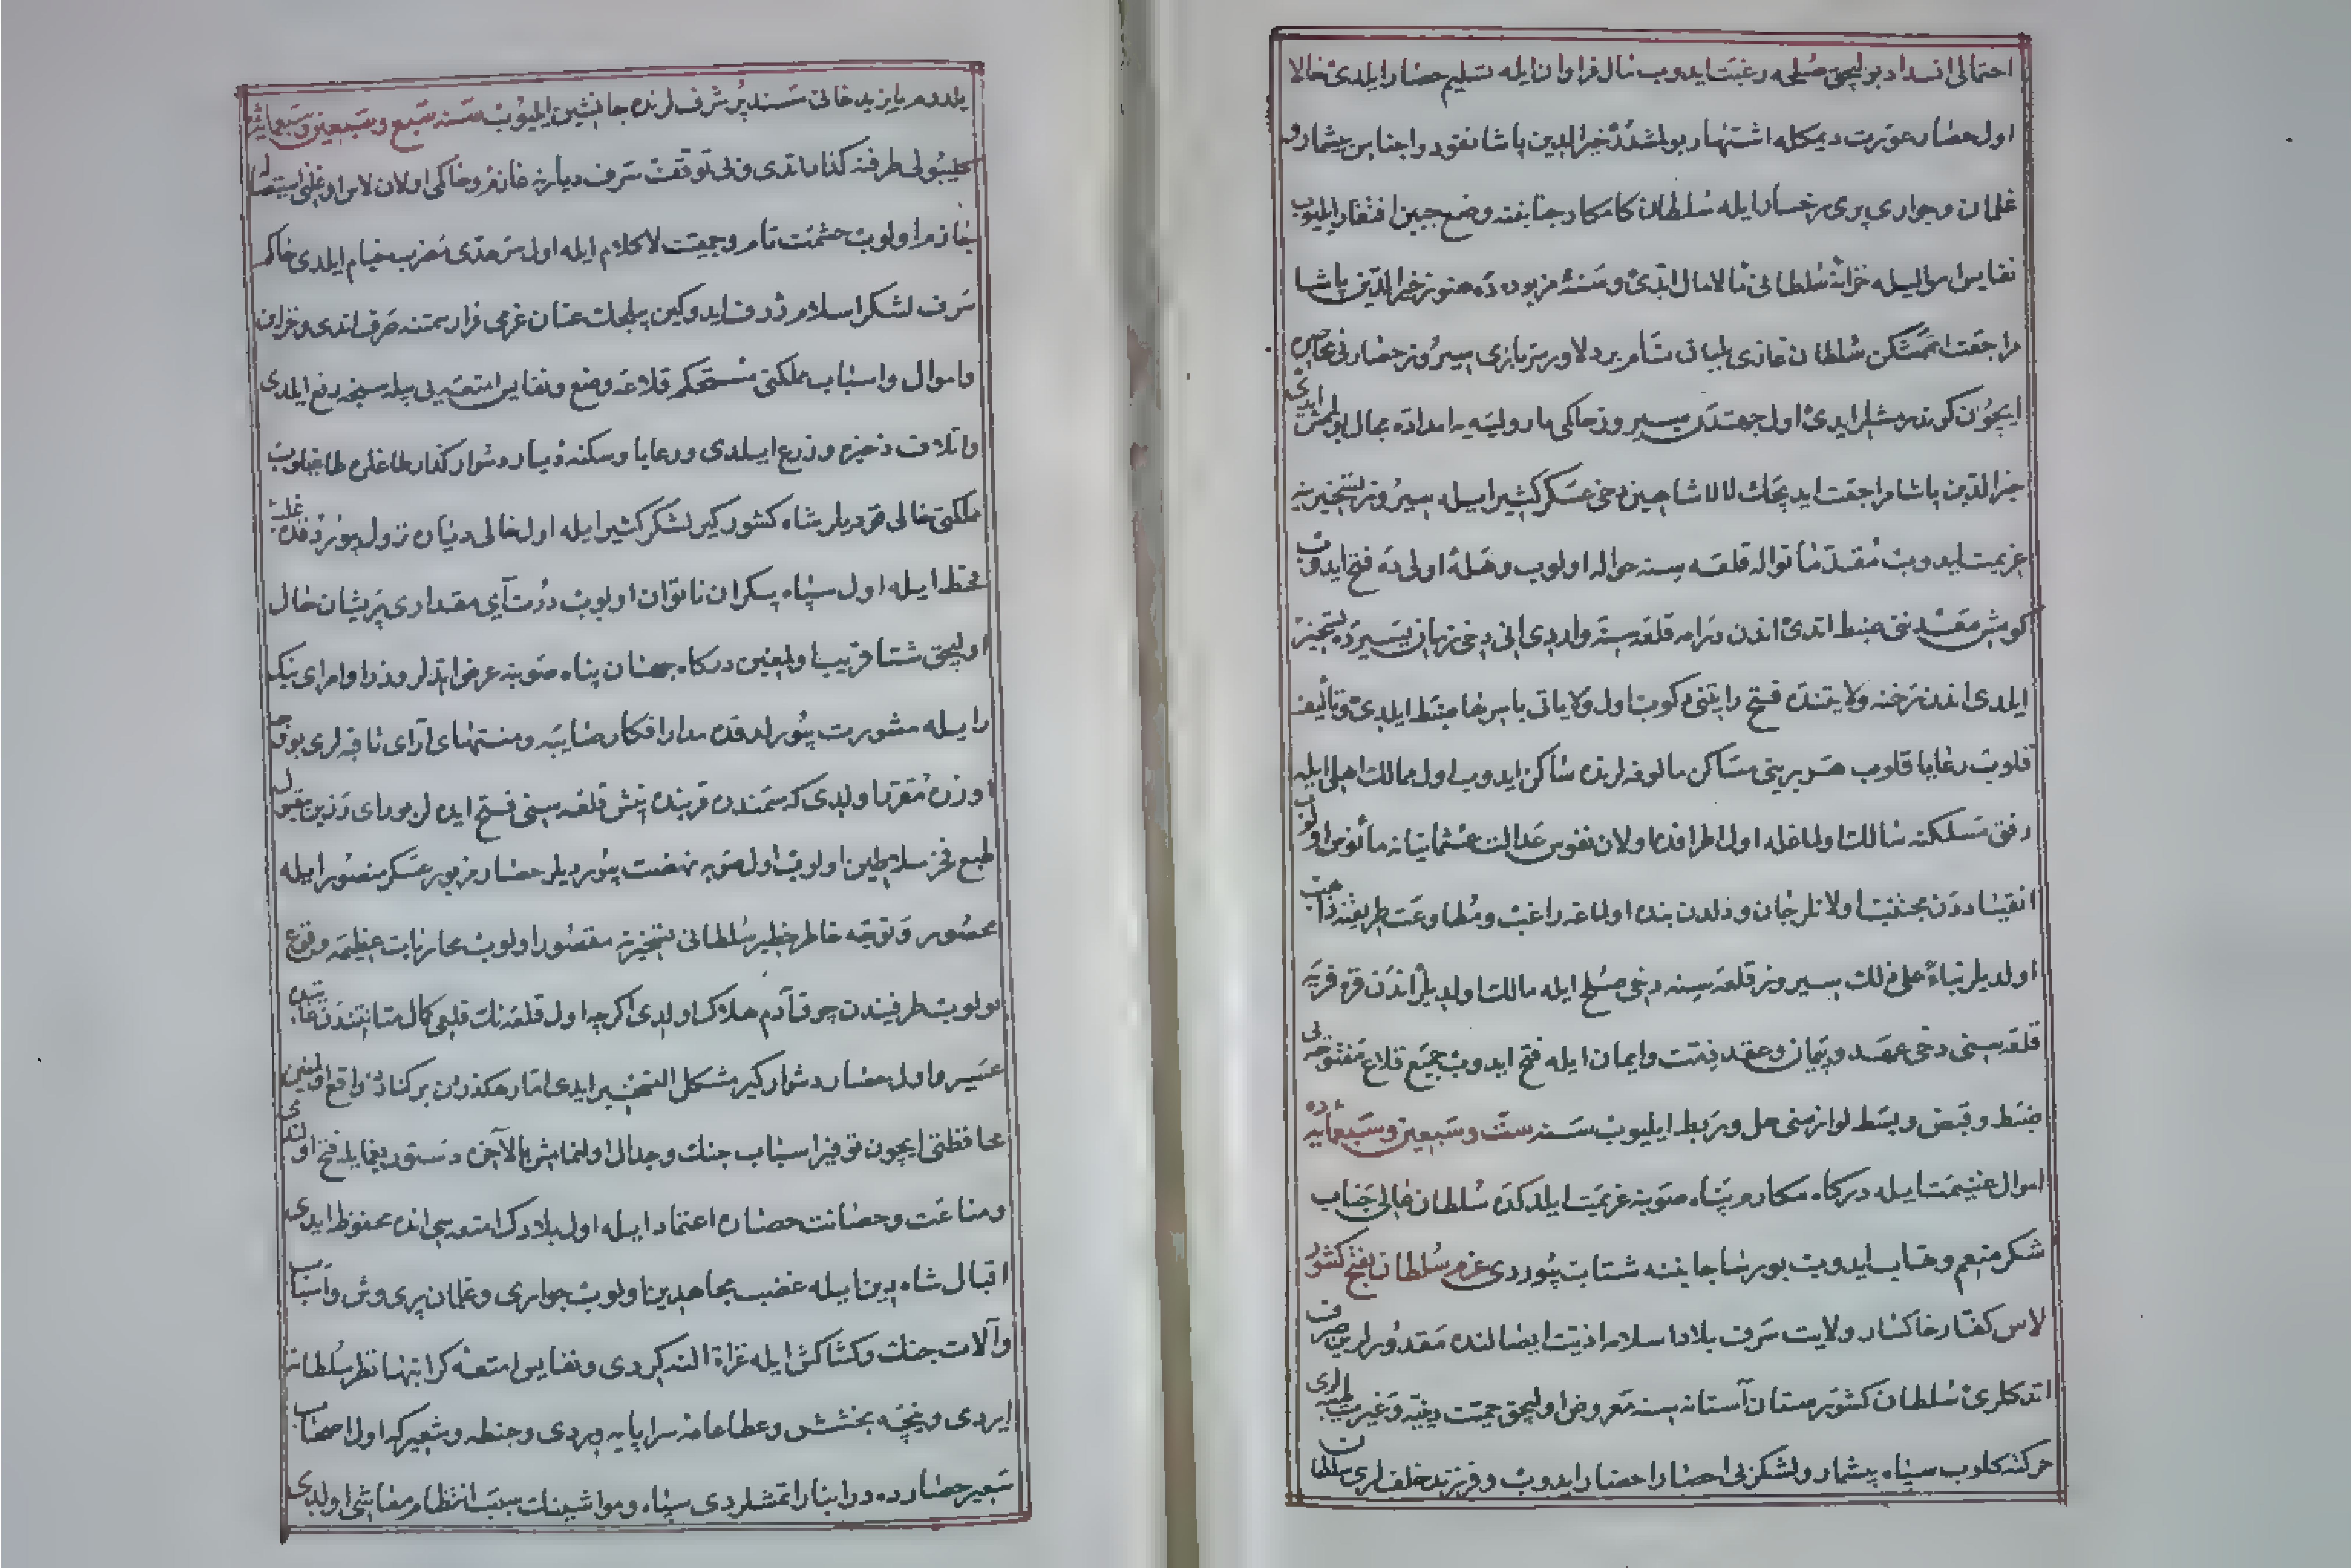 احتمالی انسداد بولیجق صلحه رغبت ایدوب مال فراوان ایله تسلیم حصار ایلدی حالا
اول حصار عورت دیمکله اشتهار بولمشدر خیرالدین پاشا نقود و اجناس بیشمار و
غلمان و جواری پری رخسار ایله سلطان کامکار جنابنه وضع جبین افتقار ایلیوب
نفایس اموالیله خزانه سلطانی مالامال اتدی و سنه مزبوره ده هنوز خیرالدین پاشا
مراجعت اتممشکن سلطان غازی بلبان نام بر دلاور سربازی سیروز حصارنی محاصره
ایچون کوندرمشلر ایدی اول جهتدن سیروز حاکمی مارولیه یه امداده مجال بولمامش ایدی
خیرالدین پاشا مراجعت ایدیجک لالا شاهین دخی عسکر کثیر ایله سیروز تسخیرینه
عزیمت ایدوب مقدما قواله قلعه سنه حواله اولوب وهله اولی ده فتح ایدوب
کومش معدننی ضبط اتدی اندن درامه قلعه سنه واردی انی دخی زمان یسیرده تسخیر
ایلدی اندن زخنه ولایتنده فتح رایتنی دکوب اول ولایاتی باسرها ضبط ایلدی و تألیف
قلوب رعایا قلوب هر برینی مساکن مألوفه لرنده ساکن ایدوب اول ممالک اهلی ایله
رفق مسلکنه سالک اولماغله اول اطرافده اولان نفوس عدالت عثمانیانه مأنوس اولوب
انقیاددن مجتنب اولانلر جان و دلدن بنده اولماغه راغب و مطاوعت طریقنه ذاهب
اولدیلر بناء علی ذلک سیروز قلعه سنه دخی صلح ایله مالک اولدیلر اندن قره فریه
قلعه سنی دخی عهد و پیمان و عقد ذمت و ایمان ایله فتح ایدوب جمیع قلاع مفتوحه نی
ضبط و قبض و بسط لوازمنی حل و ربط ایلیوب سنه ست و سبعین و سبعمائه ده
اموال غنیمت ایله درکاه مکارم پناه صوبنه عزیمت ایلدکده سلطان عالی جناب
شکر منعم وهاب ایدوب بورسا جانبنه شتاب بیوردی عزم سلطان بفتح کشور
لاس کفار خاکسار ولایت سرف بلاد اسلامه اذیت ایصالنده مقدورلرین صرف
اتدکلری سلطان کشورستان آستانه سنه معروض اولیجق حمیت دینیه و غیرت طبیه لری
حرکته کلوب سپاه بیشمار و لشکرنی احضار ایدوب و فرزند خلفلری سلطان
یلدرم بایزید خانی مسند پر شرفلرنده جانشین ایلیوب سنه سبع و سبعین و سبعمائه ده
کلیبولی طرفنه کذار اتدی ولی توقف سرف دیارنه خانه و حاکمی اولان لاس اوغلی استیصالنه
عازم اولوب حشمت تام و جمعیت لا کلام ایله اول سرحدی مضرب خیام ایلدی حاکم
سرف لشکر اسلام ورود ایدوکین بیلجک عنان عزمی فرار سمتنه صرف اتدی و خزاین
و اموال و اسباب مملکتی مستحکم قلاعه وضع و نفایس امتعه نی بیله سنجه رفع ایلدی
و اتلاف ذخیره و زرع ایلدی و رعایا و سکنه دیار دشوار کذار طاغلره طاغیلوب
مملکتی خالی قودیلر شاه کشور کیر لشکر کثیر ایله اول خالی دیاره نزول بیوردقده غلبه
قحط ایله اول سپاه بیکران ناتوان اولوب درت آی مقداری پریشان حال
اولیجق شتا قریب اولمغین درکاه جهان پناه صوبنه عرض اتدلر وزرا و امرای نیک
رایله مشورت بیورلدقده مدار افکار صایبه و منتهای آرای ثاقبه لری بو وجه
اوزره مقرر اولدی که سمتنده قربنده نیش قلعه سنی فتح ایده لر بو رای رزین مقبول
طبع فخر سلاطین اولوب اول صوبه نهضت بیوردیلر حصار مزبور عسکر منصور ایله
محصور و توجه خاطر خطیر سلطانی تسخیرینه مقصور اولوب محاربات عظیمه وقوع
بولوب طرفیندن چوق آدم هلاک اولدی اکرچه اول قلعه نک قلعی کمال متانتندن غایتده
عسیر و اول حصار دشوار کیر مشکل التسخیر ایدی اما رهکذرلرن برکنارده واقع اولمغین
محافظتی ایچون توفیر اسباب جنک و جدال اولنمامش بالآخره دستور یغما یله فتح اولندی
و مناعت و حصانت حصاره اعتماد ایله اول بلادک امتعه سی انده محفوظ ایدی
اقبال شاه دین ایله غضب مجاهدین اولوب جواری و غلمان پری وش و اسباب
و آلات جنک و کشاکش ایله غزاة النه کردی و نفایس امتعه کرانبها نظر سلطانه
ایردی و نیجه بخشش و عطا عامه سرا پایه ویردی و حنطه و شعیر که اول اصحاب
سعیر حصارده در انبار اتمشلردی سپاه و مواشینک سبب انتظام معاشی اولدی